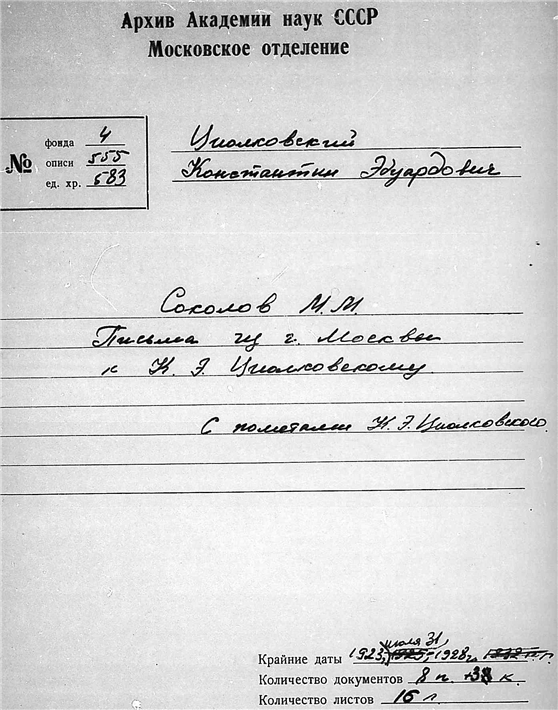 Архив Академии наук СССР
Московское отделение
№
фонда 4
описи 555
ед. хр. 583
Циолковский
Константин Эдуардович
Соколов М.М.
Письма из г. Москвы
к К. Э. Циолковскому.
С пометами К.Э. Циолковского.
Крайние даты 1923, июля 31, -1928 г.
Количество документов 8 п. + 3 к.
Количество листов 16 л.